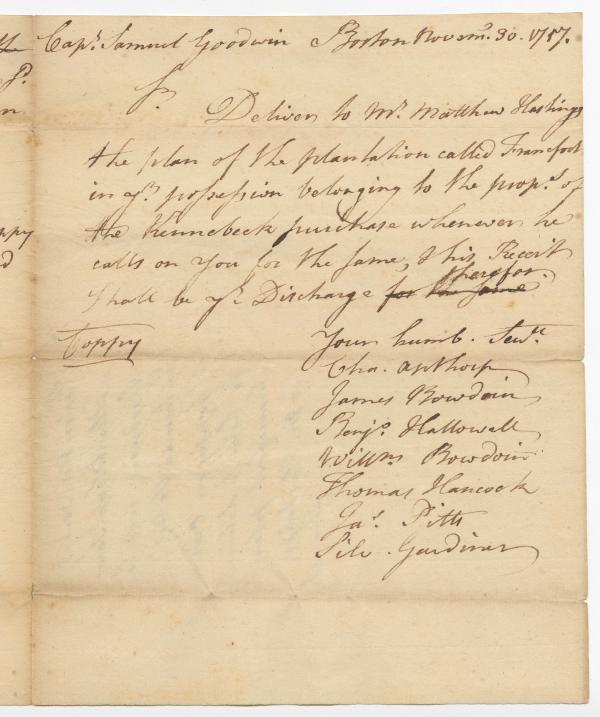 Cap.t Samuel Goodwin Boston Novem.r 30. 1757.
S.r
Deliver to M.r Matthew Hastings
the plan of the plantation called Francfort
in y.r possession belonging to the prop.s of
the Kennebeck purchase whenever he
calls on You for the same, & his Receit
therefor
shall be y.r Discharge for the same
Coppy
Your humb. Serv.ts
Cha. Apthorp
James Bowdoin
Benj.a Hallowell
Will.m Bowdoin
Thomas Hancock
Ja.s Pitts
Silv. Gardiner
the
n
oppy
d